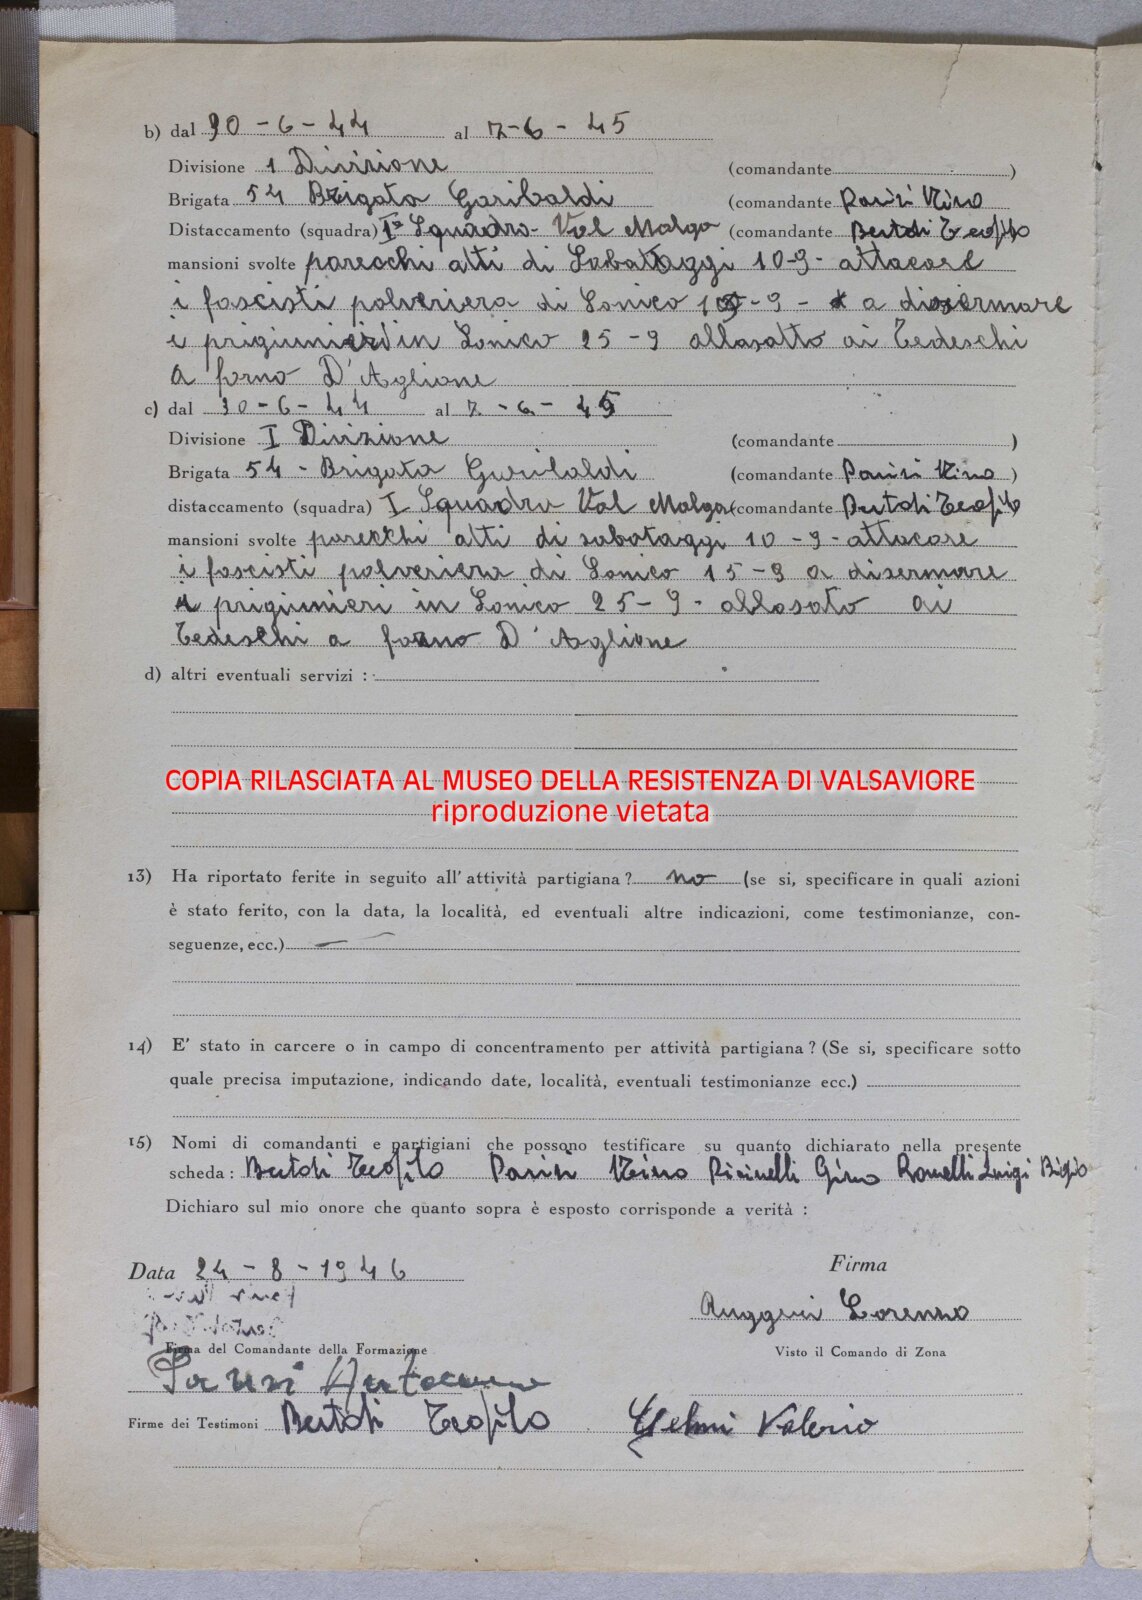 b) dal 30-6-44 al 7-6-45
Divisione 1 Divisione (comandante )
Brigata 54 Brigata Garibaldi (comandante Parisi Nino
Distaccamento (squadra) Iª Squadra - Val Malga (comandante Bertoli Teofilo
mansioni svolte parecchi atti di Sabattaggi 10-9- attacare
i fascisti polveriera di Sonico 15-9- a disermare
i prigiunieri in Sonico 25-9 allasatto ai Tedeschi
a forno D'Aglione
c) dal 30-6-44 al 7-6-45
Divisione I Divizione (comandante )
Brigata 54 - Brigata Garibaldi (comandante Parisi Nino )
distaccamento (squadra) I Squadra Val Malga (comandante Bertoli Teofilo
mansioni svolte parecchi atti di sabotaggi 10-9-attacare
i fascisti polveriera di Sonico 15-9 a disermare
i prigiunieri in Sonico 25-9- allasato ai
Tedeschi a forno D'Aglione
d) altri eventuali servizi :
COPIA RILASCIATA AL MUSEO DELLA RESISTENZA DI VALSAVIORE
riproduzione vietata
13) Ha riportato ferite in seguito all'attività partigiana? no (se si, specificare in quali azioni
è stato ferito, con la data, la località, ed eventuali altre indicazioni, come testimonianze, con-
seguenze, ecc.) —
14) E' stato in carcere o in campo di concentramento per attività partigiana? (Se si, specificare sotto
quale precisa imputazione, indicando date, località, eventuali testimonianze ecc.)
15) Nomi di comandanti e partigiani che possono testificare su quanto dichiarato nella presente
scheda: Bertoli Teofilo Parisi Nino Ricinelli Gino Romelli Luigi Bigio
Dichiaro sul mio onore che quanto sopra è esposto corrisponde a verità :
Data 24-8-1946
Firma
Ruggeri Lorenzo
Firma del Comandante della Formazione
Visto il Comando di Zona
Firme dei Testimoni Bertoli Teofilo Valerio